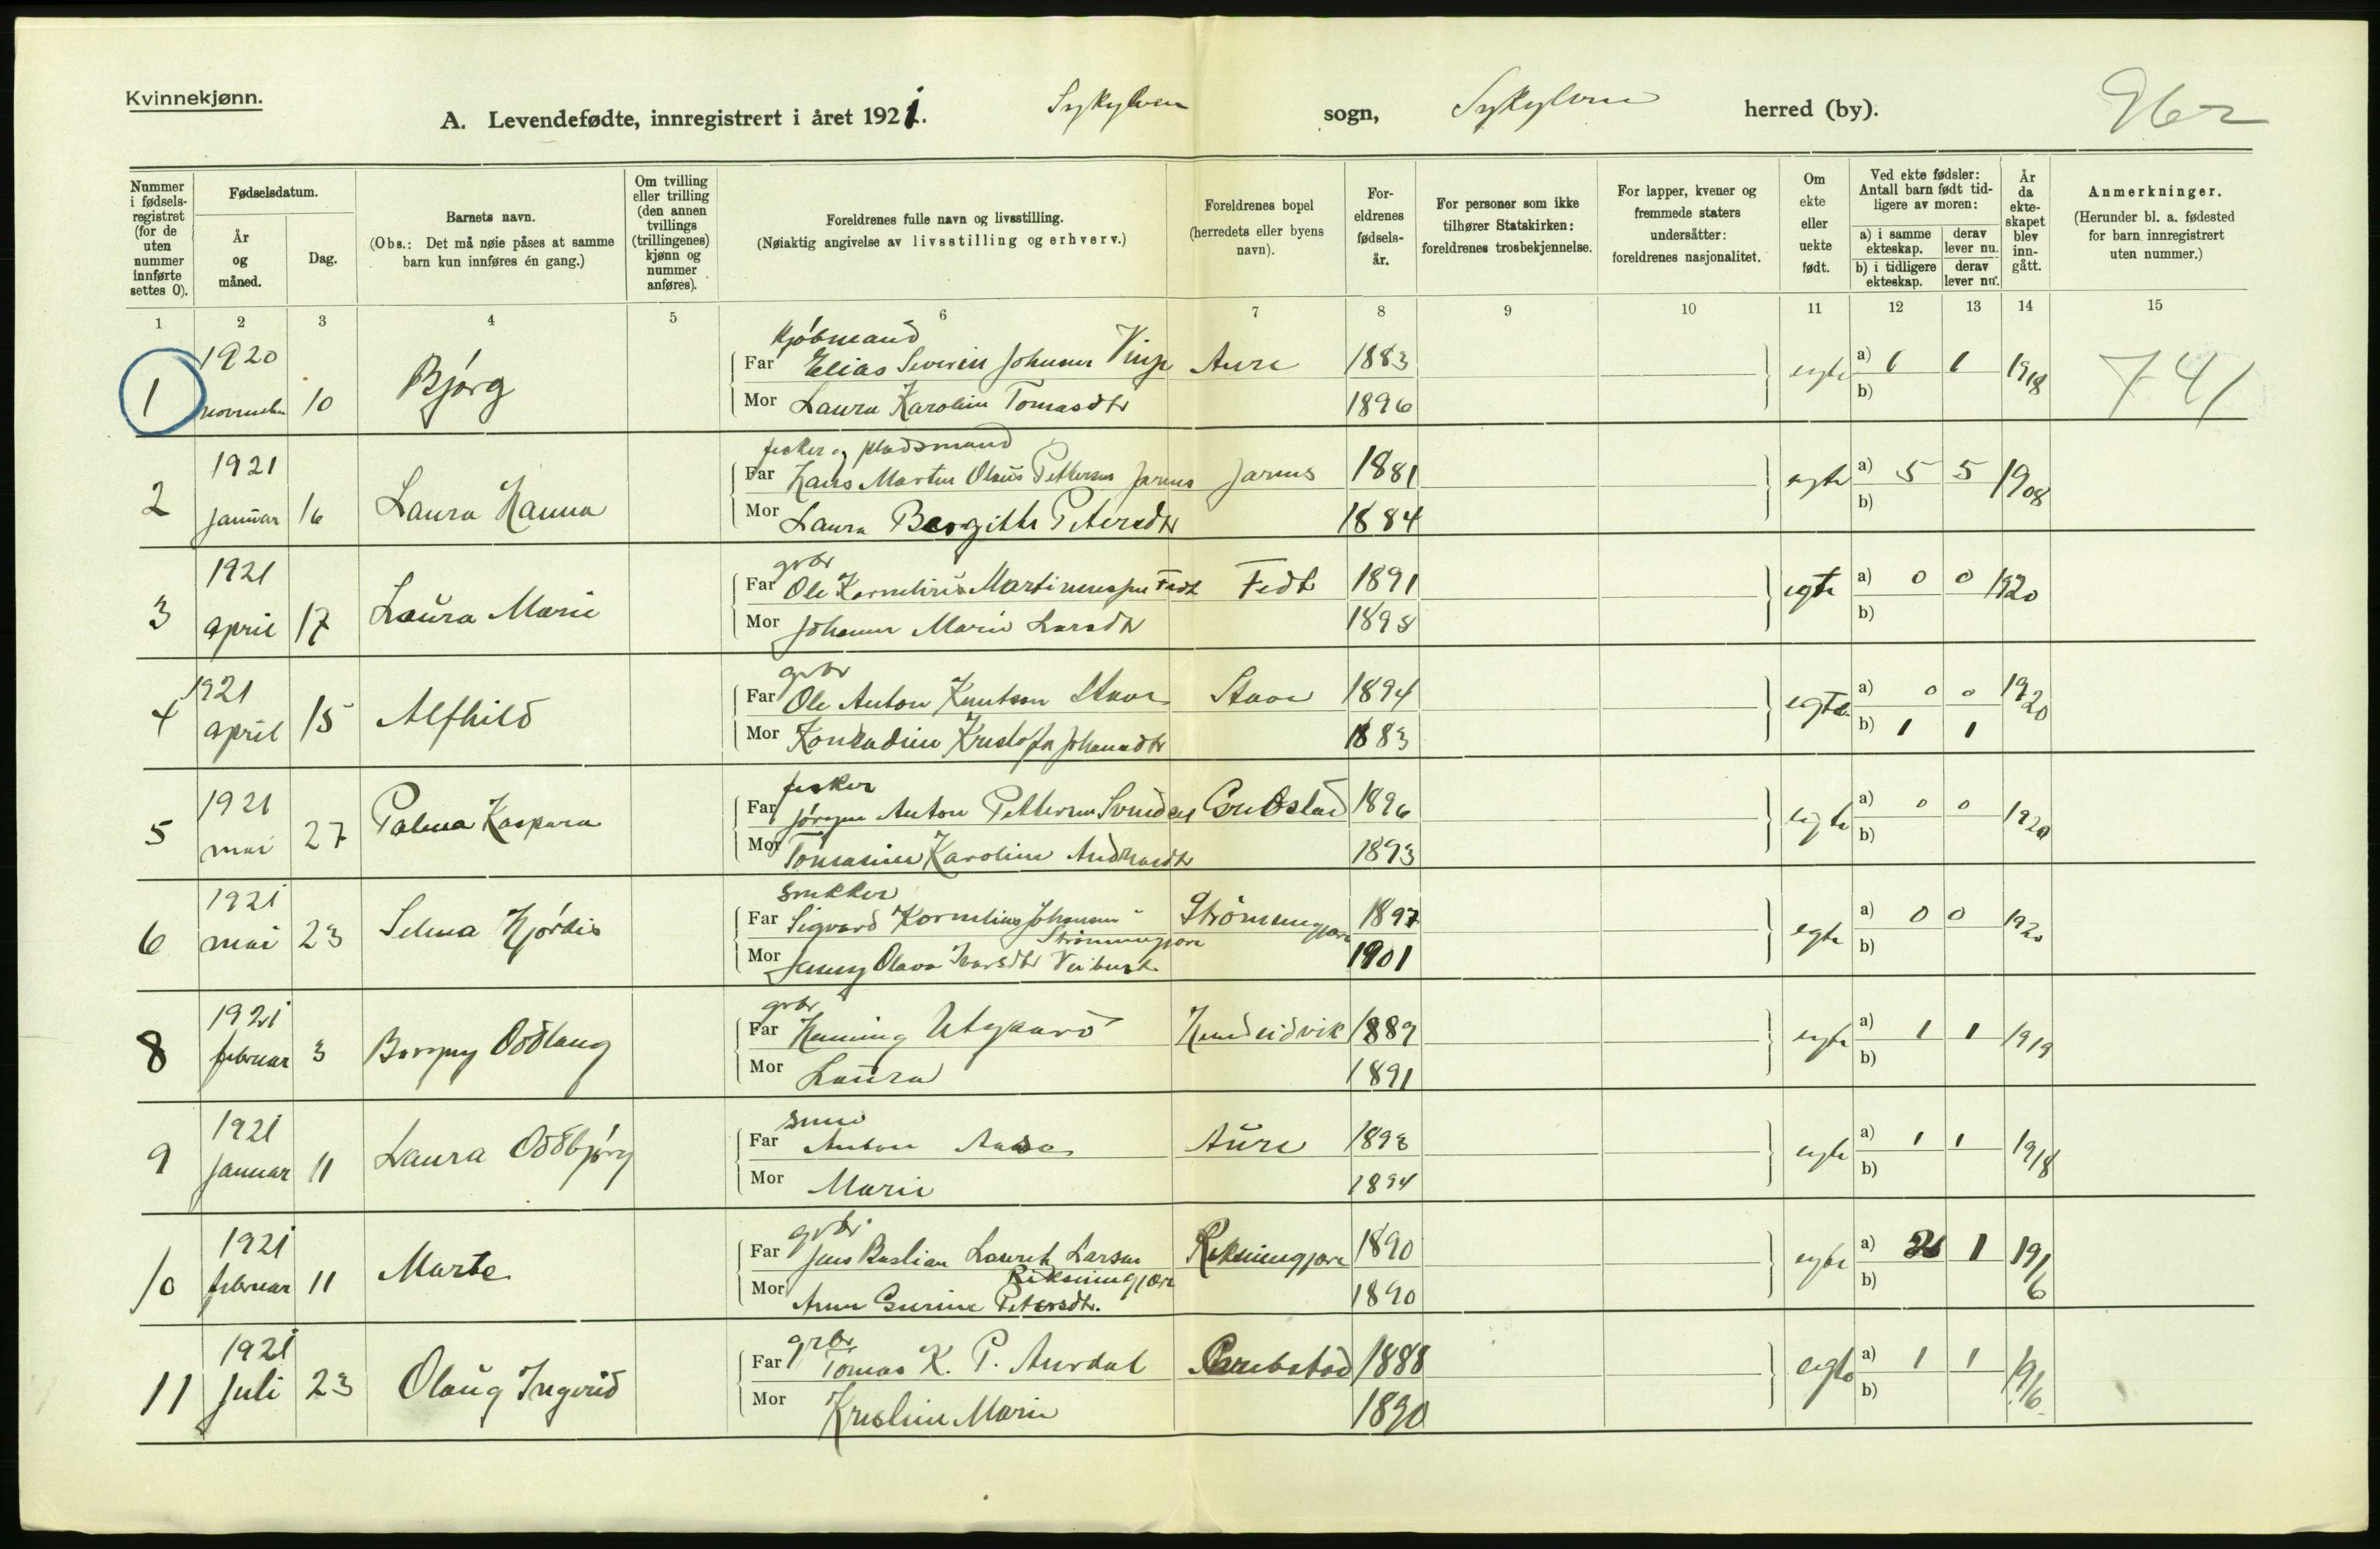 Kvinnekjønn.
A. Levendefødte, innregistrert i året 1921. Sykylven sogn, Sykylven herred (by).
Nummer i fødselsregistret (for de uten nummer innførte settes 0).
Fødselsdatum.
År og måned.
Dag.
Barnets navn.
(Obs.: Det må nøie påses at samme barn kun innføres én gang.)
Om tvilling eller trilling (den annen tvillings (trillingenes) kjønn og nummer anføres).
Foreldrenes fulle navn og livsstilling.
(Nøiaktig angivelse av livsstilling og erhverv.)
Foreldrenes bopel (herredets eller byens navn).
Foreldrenes fødselsår.
For personer som ikke tilhører Statskirken: foreldrenes trosbekjennelse.
For lapper, kvener og fremmede staters undersåtter: foreldrenes nasjonalitet.
Om ekte eller uekte født.
Ved ekte fødsler: Antall barn født tidligere av moren:
a) i samme ekteskap. derav lever nu.
b) i tidligere ekteskap. derav lever nu.
År da ekteskapet blev inngått.
Anmerkninger.
(Herunder bl. a. fødested for barn innregistrert uten nummer.)
1 2 3 4 5 6 7 8 9 10 11 12 13 14 15
kjøbmand
1 1920 november 10 Bjørg Far Elias Severin Johnsen Aure 1883 egte a) 1 1 1918 741
Mor Laura Karoline Tomasdtr 1896 b)
fisker og pladsmand
2 1921 januar 16 Laura Hanna Far Hans Martin Olaus Pettersen Jarnes Jarnes 1881 egte a) 5 5 1908
Mor Laura Bergitte Petersdtr 1884 b)
grbr
3 1921 april 17 Laura Marie Far Ole Kornelius Martinussen Fedt Fedt 1891 egte a) 0 0 1920
Mor Johanne Marie Larsdtr 1895 b)
grbr
4 1921 april 15 Alfhild Far Ole Anton Knutsen Stave Stave 1894 egte a) 0 0 1920
Mor Konradine Kristofa Johansdtr 1883 b) 1 1
fisker
5 1921 mai 27 Palma Kaspara Far Jørgen Anton Pettersen Grebstad 1896 egte a) 0 0 1920
Mor Tomasine Karoline 1893 b)
snekker
6 1921 mai 23 Selma Hjørdis Far Sigvard Kornelius Johansen Strømmegjære Strømmegjære 1897 egte a) 0 0 1920
Mor Jenny Olava Ivarsdtr 1901 b)
grbr
8 1921 februar 3 Borgny Oddlaug Far Henning Utgaard Hundeidvik 1889 egte a) 1 1 1919
Mor Laura 1891 b)
smed
9 1921 januar 11 Laura Oddbjørg Far Anton Aase Aure 1893 egte a) 1 1 1918
Mor Marie 1894 b)
grbr
10 1921 februar 11 Marte Far Jens Bastian Laurits Larsen 1890 egte a) 1 1916
Mor Anne Gurine Petersdtr. 1890 b)
grbr
11 1921 juli 23 Olaug Ingerid Far Tomas K. P. Aurdal Grebstad 1888 egte a) 1 1 1916
Mor Kristine Marie 1890 b)